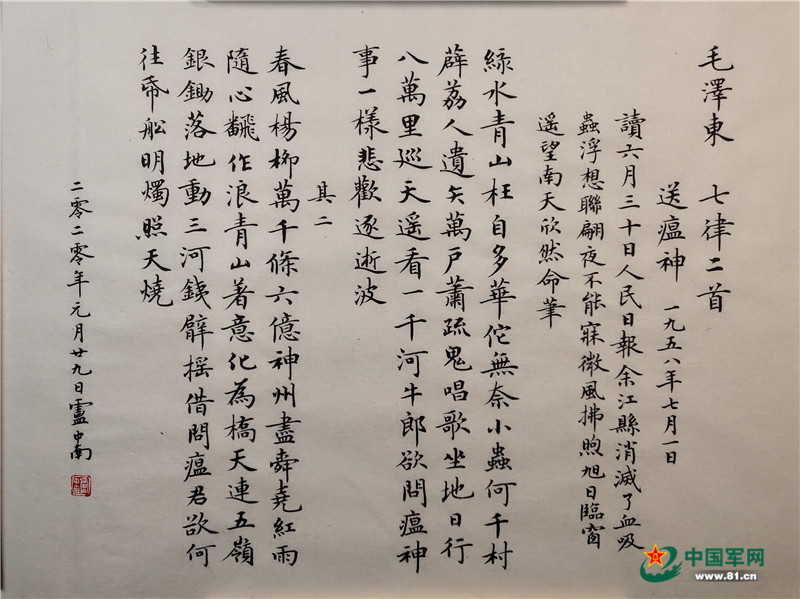 毛澤東 七律二首
送瘟神 一九五八年七月一日
讀六月三十日人民日報余江縣消滅了血吸
蟲浮想聯翩夜不能寐微風拂煦旭日臨窗
遥望南天欣然命筆
綠水青山枉自多華佗無奈小蟲何千村
薜荔人遺矢萬戶蕭疏鬼唱歌坐地日行
八萬里巡天遥看一千河牛郎欲問瘟神
事一樣悲歡逐逝波
其二
春風楊柳萬千條六億神州盡舜堯紅雨
隨心飜作浪青山著意化為橋天連五嶺
銀鋤落地動三河鐵臂摇借問瘟君欲何
往帋船明燭照天燒
二零二零年元月廿九日盧中南
中国军网
www.81.cn